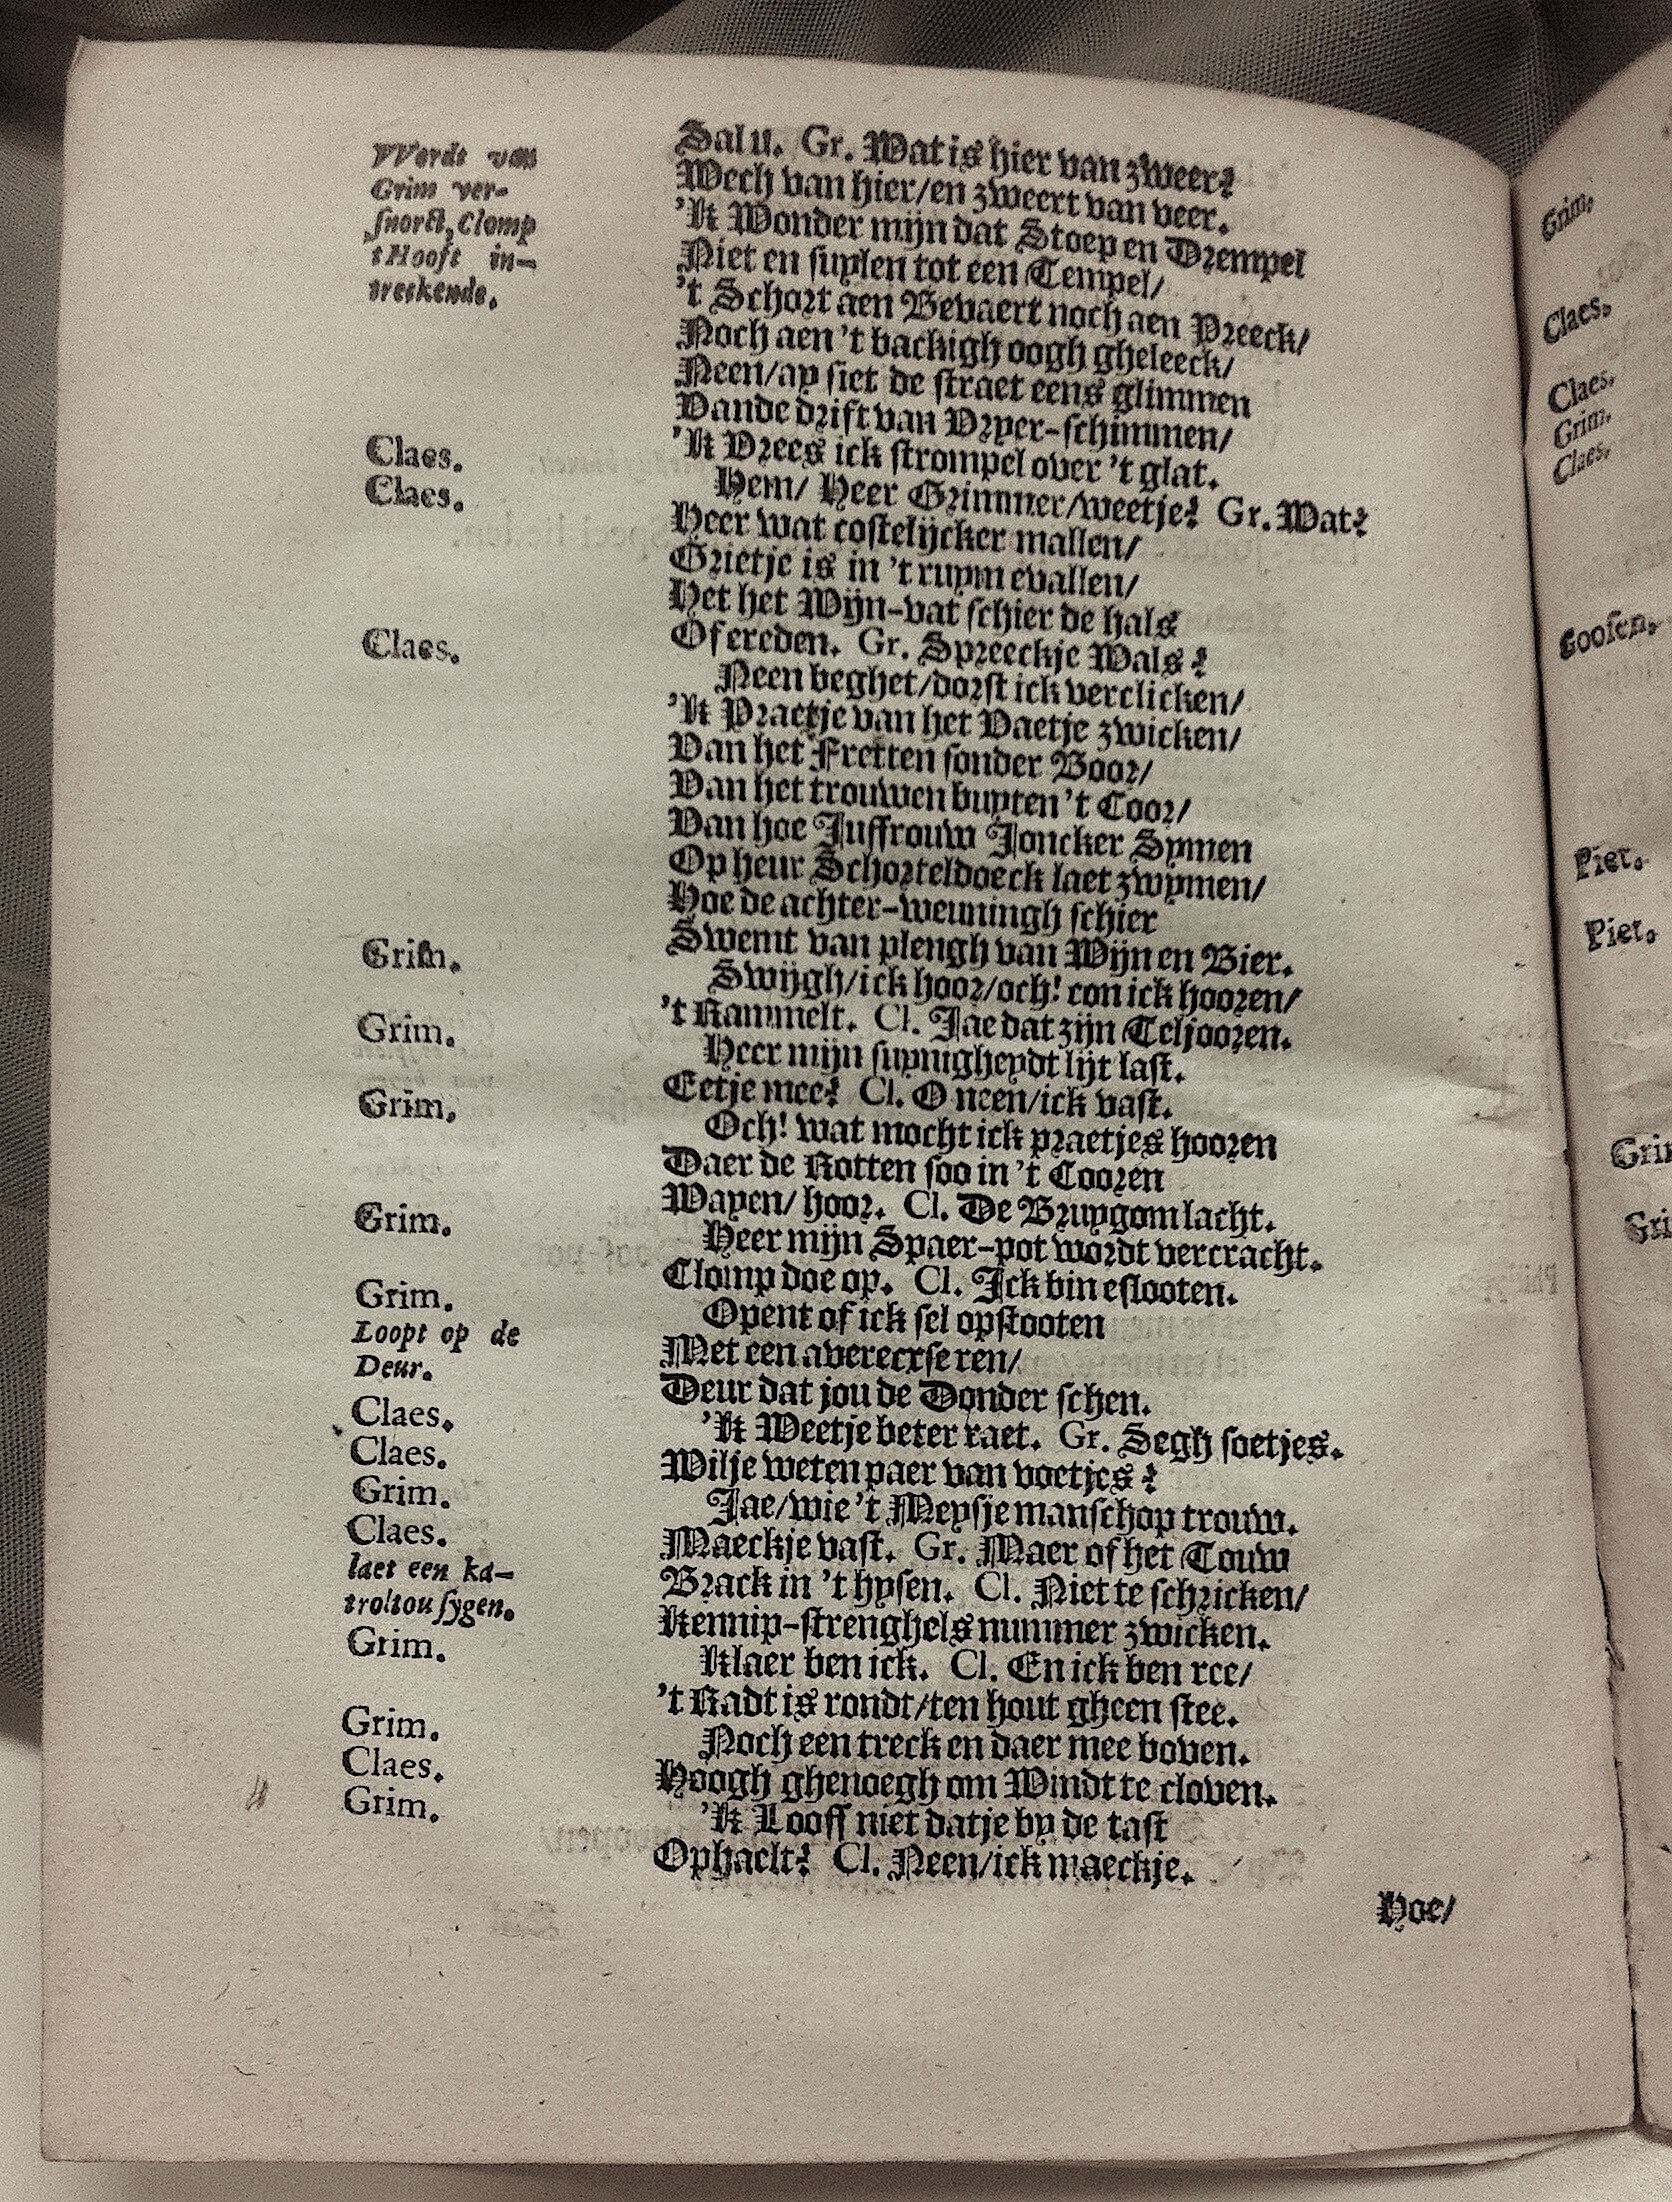 VVerdt van
Grim ver-
snorckt, Clomp
t Hooft in-
treckende.
Sal u. Gr. Wat is hier van zweer?
Wech van hier/en zweert van veer.
'k Wonder mijn dat Stoep en Drempel
Niet en suylen tot een Tempel/
't Schort aen Bevaert noch aen Preeck/
Noch aen 't backigh oogh gheleeck/
Neen/ay siet de straet eens glimmen
Vande drift van Vryer-schimmen/
'k Vrees ick strompel over 't glat.
Claes. Hem/ Heer Grimmer/weetje? Gr. Wat?
Claes. Heer wat costelijcker mallen/
Grietje is in 't ruym evallen/
Het het Wijn-vat schier de hals
Of ereden. Gr. Spreeckje Wals?
Claes. Neen beghet/dorst ick verclicken/
'k Praetje van het Vaetje zwicken/
Van het Fretten sonder Boor/
Van het trouwen buyten 't Coor/
Van hoe Juffrouw Joncker Symen
Op heur Schorteldoeck laet zwymen/
Hoe de achter-weuningh schier
Swemt van plengh van Wijn en Bier.
Grim. Swijgh/ick hoor/och! con ick hooren/
't Rammelt. Cl. Jae dat zijn Teljooren.
Grim. Heer mijn suynigheydt lijt last.
Eetje mee? Cl. O neen/ick vast.
Grim. Och! wat mocht ick praetjes hooren
Daer de Rotten soo in 't Cooren
Wayen/ hoor. Cl. De Bruygom lacht.
Grim. Heer mijn Spaer-pot wordt vercracht.
Clomp doe op. Cl. Ick bin eslooten.
Grim. Opent of ick sel opstooten
Loopt op de
Deur.
Met een averecxse ren/
Deur dat jou de Donder schen.
Claes. 'k Weetje beter raet. Gr. Segh soetjes.
Claes. Wilje weten paer van voetjes?
Grim. Jae/wie 't Meysje manschop trouw.
Claes. Maeckje vast. Gr. Maer of het Touw
laet een ka-
troltou sygen.
Brack in 't hysen. Cl. Niet te schricken/
Kennip-strenghels nummer zwicken.
Grim. Klaer ben ick. Cl. En ick ben ree/
't Radt is rondt/ten hout gheen stee.
Grim. Noch een treck en daer mee boven.
Claes. Hoogh ghenoegh om Windt te cloven.
Grim. 'k Looff niet datje by de tast
Ophaelt? Cl. Neen/ick maeckje.
Hoe/
Grim.
Claes.
Claes.
Grim.
Claes.
Goosen.
Piet.
Piet.
Gri
Gri